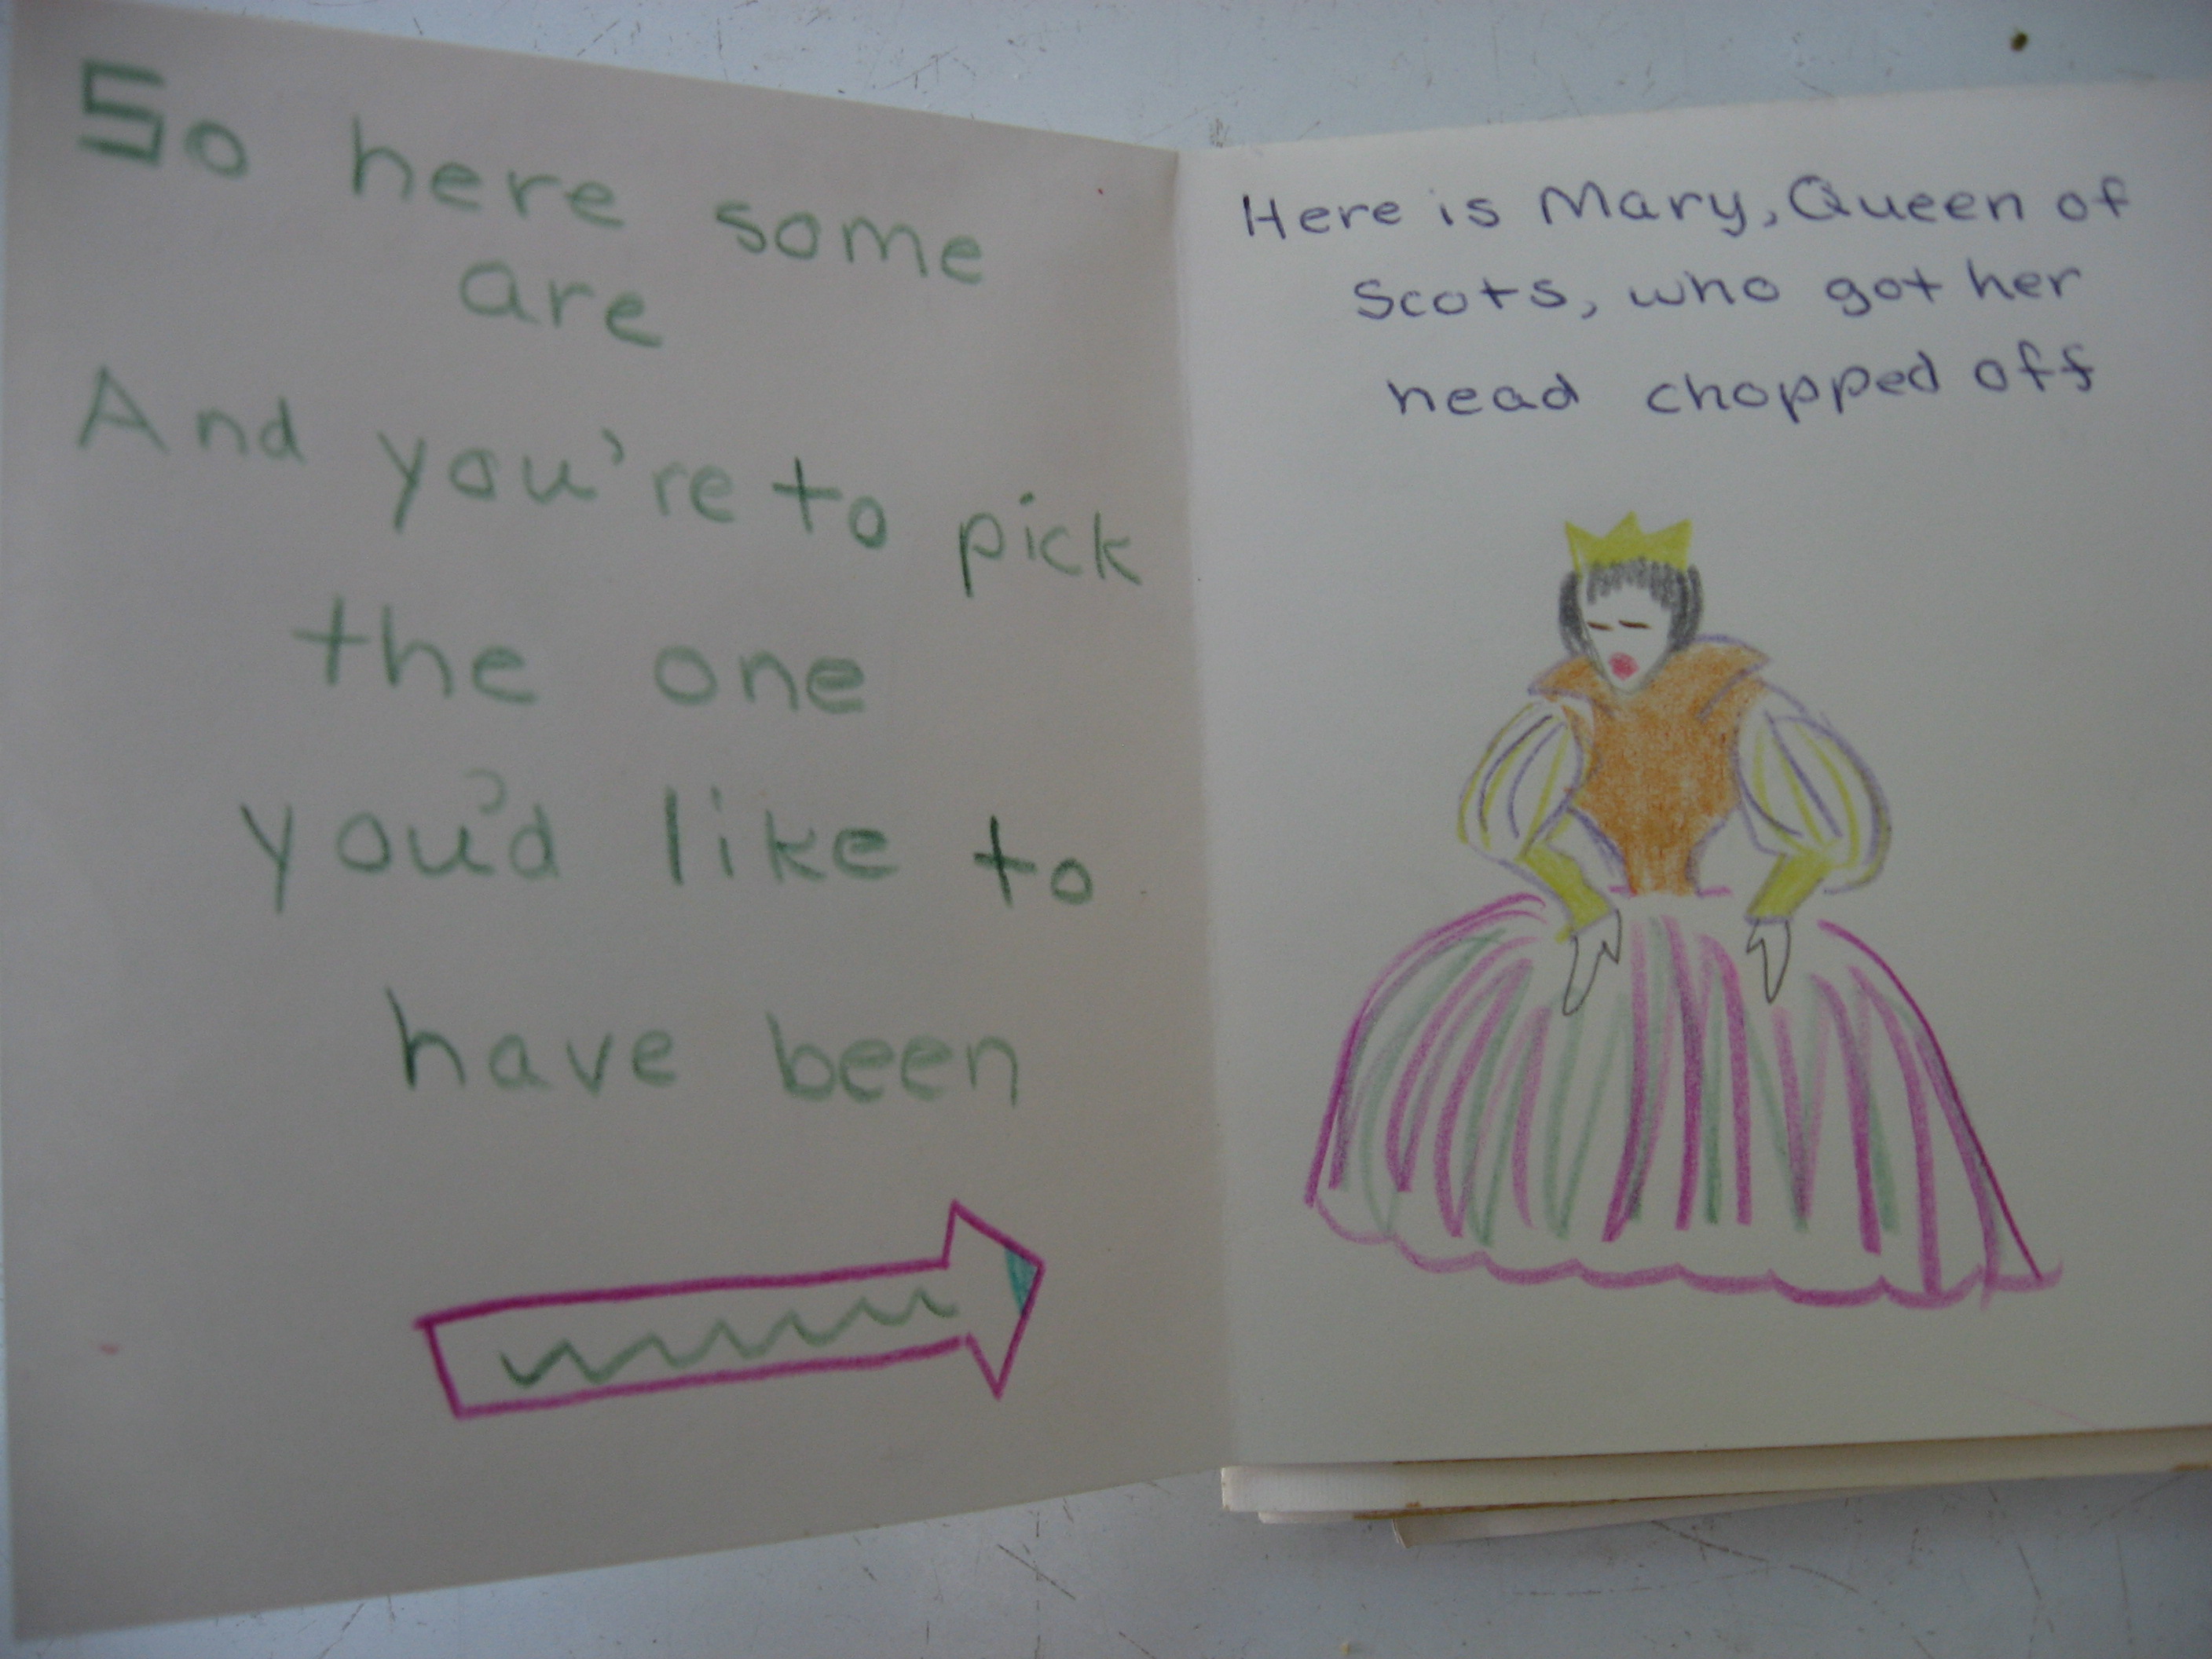 So here some
are
And you're to pick
the one
you'd like to
have been
Here is Mary, Queen of
Scots, who got her
head chopped off